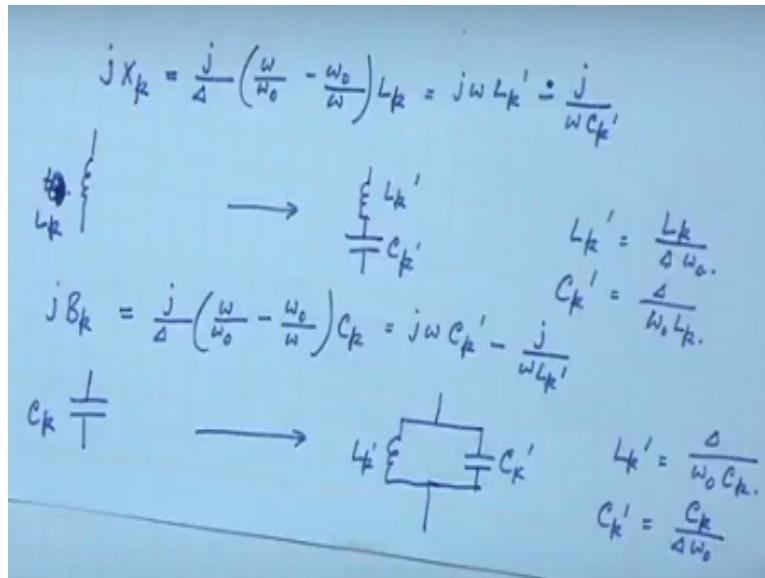 jXk = j/Δ (ω/ω0 - ω0/ω) Lk = jωLk' - j/ωCk'
Lk
Lk'
Ck'
Lk' = Lk/Δω0.
Ck' = Δ/ω0Lk.
jBk = j/Δ (ω/ω0 - ω0/ω) Ck = jωCk' - j/ωLk'
Ck
Lk'
Ck'
Lk' = Δ/ω0Ck.
Ck' = Ck/Δω0